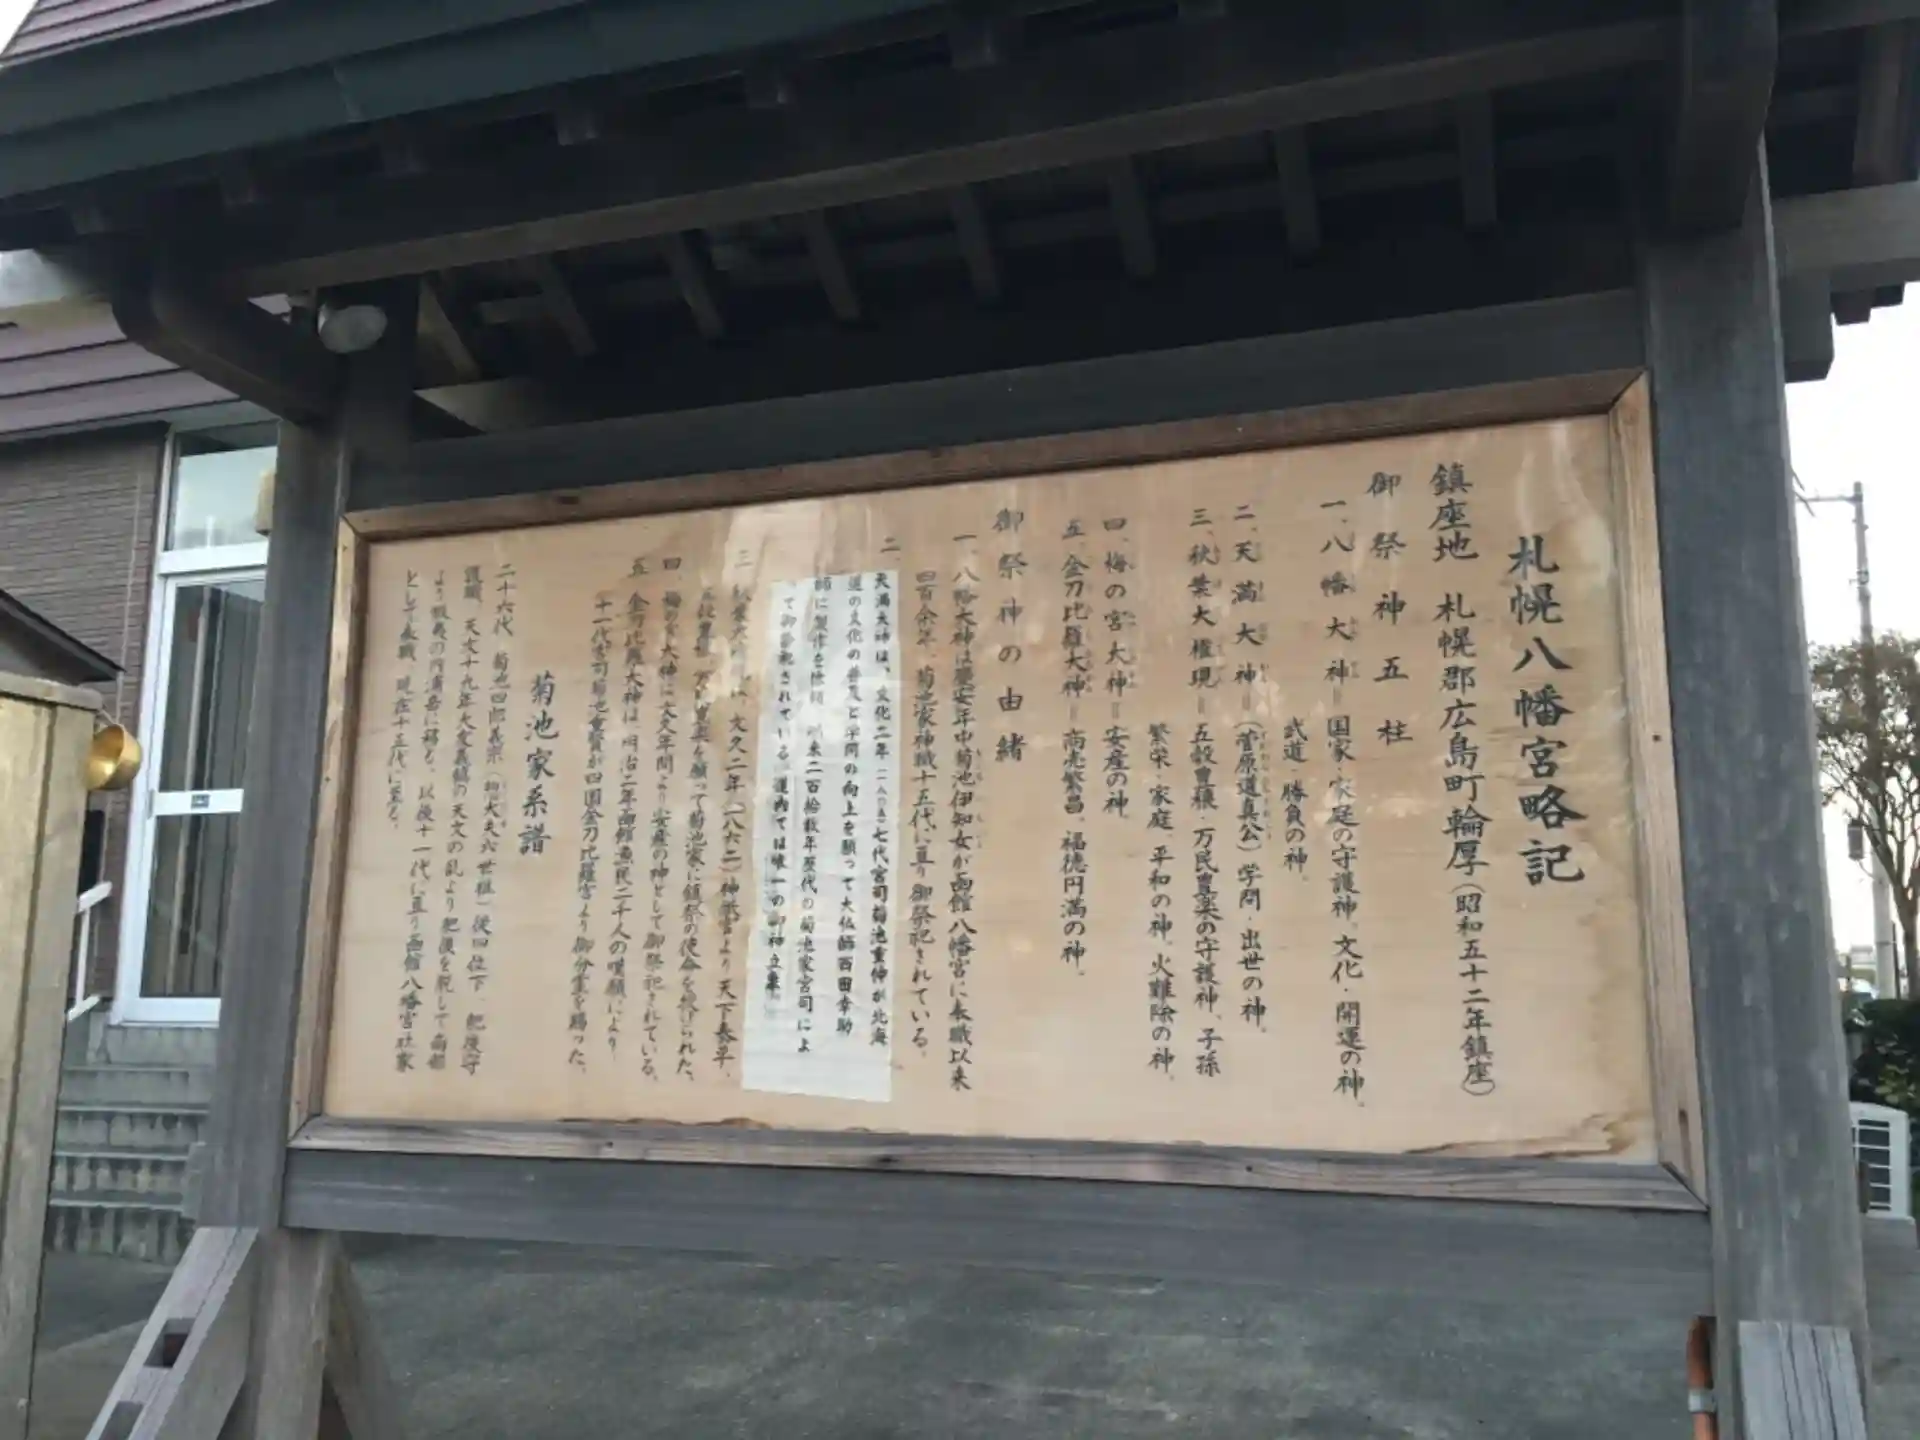 札幌八幡宮略記
鎮座地 札幌郡広島町輪厚(昭和五十二年鎮座)
御祭神五柱
一、八幡大神=国家・家庭の守護神。文化・開運の神。
武道・勝負の神。
二、天満大神=(菅原道真公)学問・出世の神。
三、秋葉大権現=五穀豊穣・万民豊楽の守護神、子孫
繁栄・家庭、平和の神。火難除の神。
四、梅の宮大神=安産の神。
五、金刀比羅大神=商売繁昌。福徳円満の神。
御祭神の由緒
一、八幡大神は慶安年中菊池伊知女が函館八幡宮に奉職以来
四百余年、菊池家神職十五代に亘り御祭祀されている。
二 天満大神は、文化二年(一八〇五)七代宮司菊池重仲が北海
道の文化の普及と学問の向上を願って大仏師西田幸助
師に製作を依頼 来二百拾数年歴代の菊池家宮司によ
って御祭祀されている。道内では唯一の御神立像。
三 秋葉大 は、文久二年(一八六二)神祇宮より天下泰平、
五穀豊穣、万民豊楽を願って菊池家に鎮祭の使命を授けられた、
四、梅の宮大神は文久年間より安産の神として御祭祀されている。
五 金刀比羅大神は、明治二年函館漁民二千人の嘆願により
十一代宮司菊池重賢が四国金刀比羅宮より御分霊を賜った。
菊池家系譜
二十六代 菊池四郎義宗(初大夫六世祖)後四位下、肥後守
護職、天文十九年大友義鎮の天文の乱より肥後を脱して南部
より蝦夷の内浦岳に移る。以後十一代に亘り函館八幡宮社家
として奉職、現在十五代に至る。